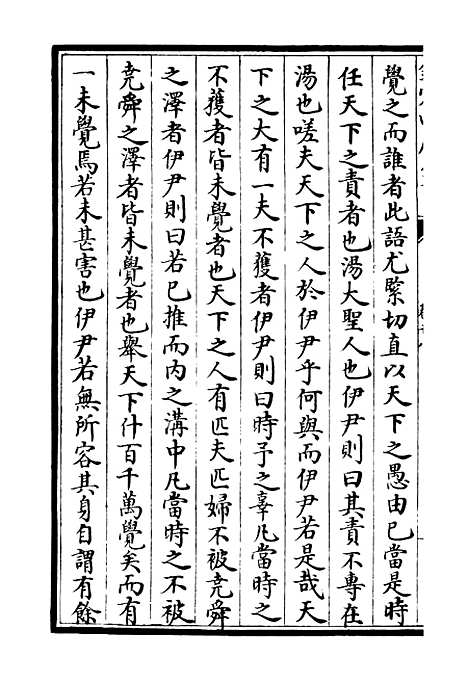 覺之而誰者此語尤緊切直以天下之愚由已當是時
任天下之責者也湯大聖人也伊尹則曰其責不專在
湯也嗟夫天下之人於伊尹乎何與而伊尹若是哉天
下之大有一夫不獲者伊尹則曰時予之辜凡當時之
不獲者皆未覺者也天下之人有匹夫匹婦不被堯舜
之澤者伊尹則曰若已推而内之溝中凡當時之不被
堯舜之澤者皆未覺者也舉天下什百千萬覺矣而有
一未覺焉若未甚害也伊尹若無所容其身自謂有餘